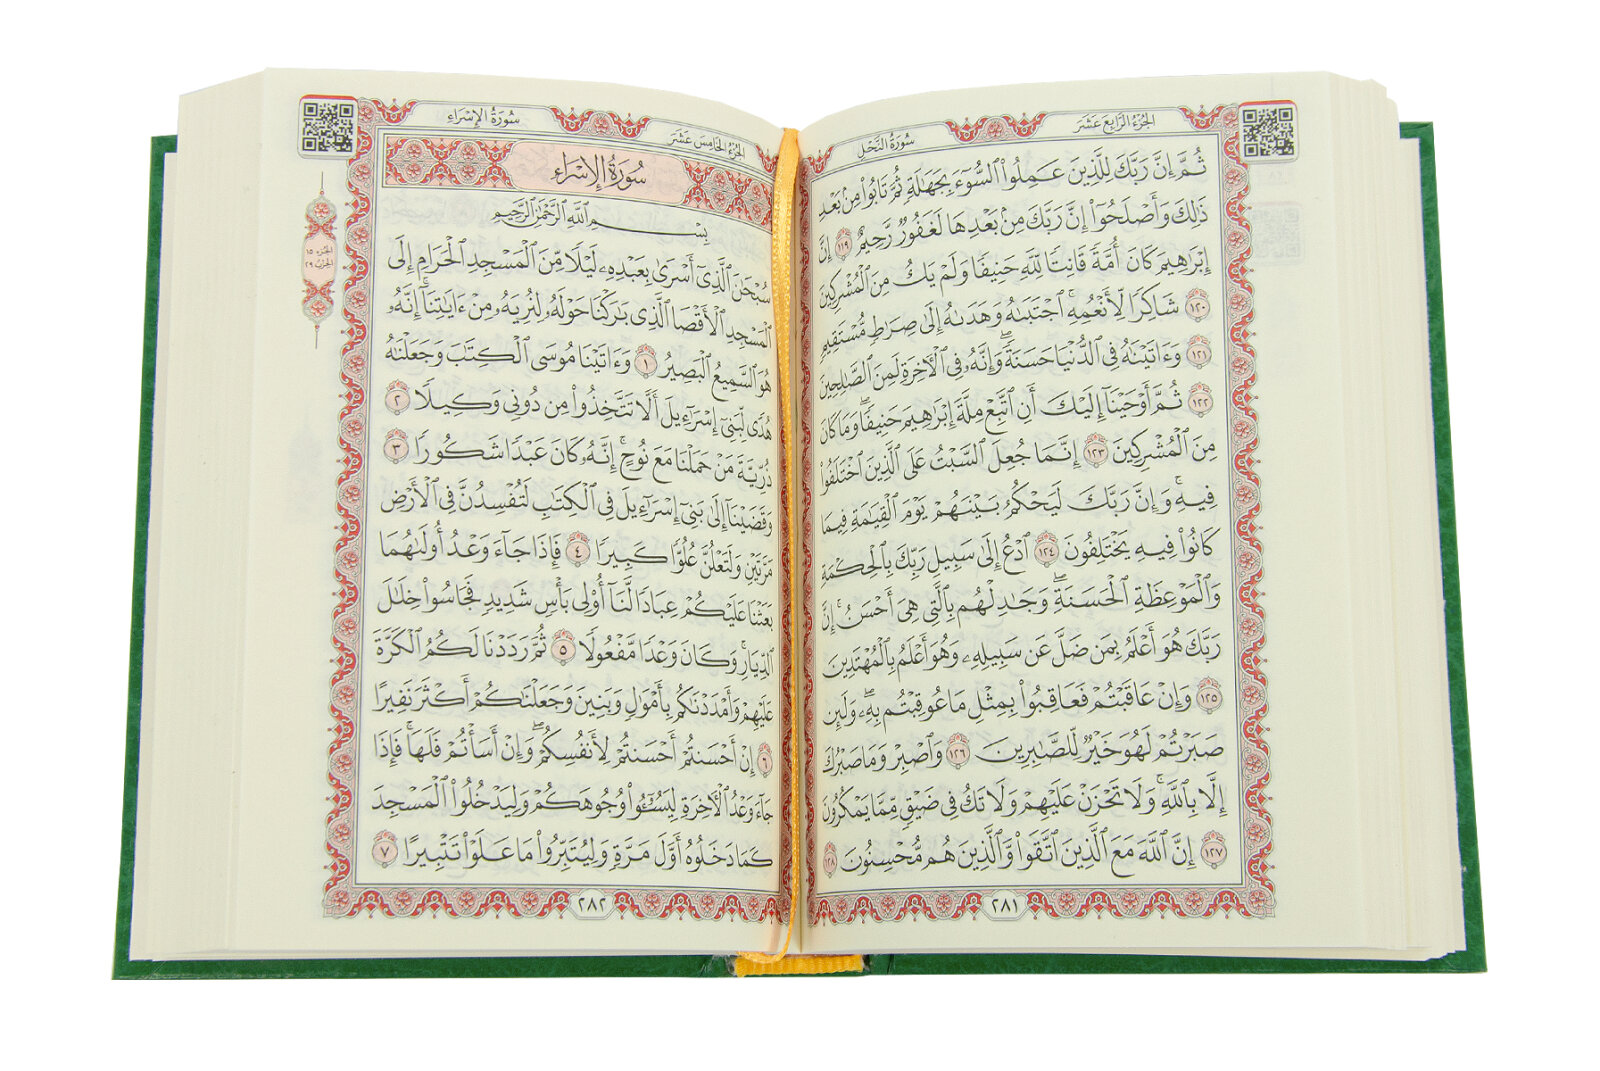 الجزء الرابع عشر
سورة النحل
ثُمَّ إِنَّ رَبَّكَ لِلَّذِينَ عَمِلُوا۟ ٱلسُّوٓءَ بِجَهَٰلَةٍ ثُمَّ تَابُوا۟ مِنۢ بَعْدِ
ذَٰلِكَ وَأَصْلَحُوٓا۟ إِنَّ رَبَّكَ مِنۢ بَعْدِهَا لَغَفُورٌ رَّحِيمٌ ١١٩ إِنَّ
إِبْرَٰهِيمَ كَانَ أُمَّةً قَانِتًا لِّلَّهِ حَنِيفًا وَلَمْ يَكُ مِنَ ٱلْمُشْرِكِينَ
١٢٠ شَاكِرًا لِّأَنْعُمِهِ ۚ ٱجْتَبَىٰهُ وَهَدَىٰهُ إِلَىٰ صِرَٰطٍ مُّسْتَقِيمٍ
١٢١ وَءَاتَيْنَٰهُ فِى ٱلدُّنْيَا حَسَنَةً ۖ وَإِنَّهُۥ فِى ٱلْءَاخِرَةِ لَمِنَ ٱلصَّٰلِحِينَ
١٢٢ ثُمَّ أَوْحَيْنَآ إِلَيْكَ أَنِ ٱتَّبِعْ مِلَّةَ إِبْرَٰهِيمَ حَنِيفًا ۖ وَمَا كَانَ
مِنَ ٱلْمُشْرِكِينَ ١٢٣ إِنَّمَا جُعِلَ ٱلسَّبْتُ عَلَى ٱلَّذِينَ ٱخْتَلَفُوا۟
فِيهِ ۚ وَإِنَّ رَبَّكَ لَيَحْكُمُ بَيْنَهُمْ يَوْمَ ٱلْقِيَٰمَةِ فِيمَا
كَانُوا۟ فِيهِ يَخْتَلِفُونَ ١٢٤ ٱدْعُ إِلَىٰ سَبِيلِ رَبِّكَ بِٱلْحِكْمَةِ
وَٱلْمَوْعِظَةِ ٱلْحَسَنَةِ ۖ وَجَٰدِلْهُم بِٱلَّتِى هِىَ أَحْسَنُ ۚ إِنَّ
رَبَّكَ هُوَ أَعْلَمُ بِمَن ضَلَّ عَن سَبِيلِهِۦ وَهُوَ أَعْلَمُ بِٱلْمُهْتَدِينَ
١٢٥ وَإِنْ عَاقَبْتُمْ فَعَاقِبُوا۟ بِمِثْلِ مَا عُوقِبْتُم بِهِۦ ۖ وَلَئِن
صَبَرْتُمْ لَهُوَ خَيْرٌ لِّلصَّٰبِرِينَ ١٢٦ وَٱصْبِرْ وَمَا صَبْرُكَ
إِلَّا بِٱللَّهِ ۚ وَلَا تَحْزَنْ عَلَيْهِمْ وَلَا تَكُ فِى ضَيْقٍ مِّمَّا يَمْكُرُونَ
١٢٧ إِنَّ ٱللَّهَ مَعَ ٱلَّذِينَ ٱتَّقَوا۟ وَّٱلَّذِينَ هُم مُّحْسِنُونَ ١٢٨
٢٨١
الجزء الخامس عشر
سورة الإسراء
سورة الإسراء
بِسْمِ ٱللَّهِ ٱلرَّحْمَٰنِ ٱلرَّحِيمِ
سُبْحَٰنَ ٱلَّذِىٓ أَسْرَىٰ بِعَبْدِهِۦ لَيْلًا مِّنَ ٱلْمَسْجِدِ ٱلْحَرَامِ إِلَى
ٱلْمَسْجِدِ ٱلْأَقْصَا ٱلَّذِى بَٰرَكْنَا حَوْلَهُۥ لِنُرِيَهُۥ مِنْ ءَايَٰتِنَآ ۚ إِنَّهُۥ
هُوَ ٱلسَّمِيعُ ٱلْبَصِيرُ ١ وَءَاتَيْنَا مُوسَى ٱلْكِتَٰبَ وَجَعَلْنَٰهُ
هُدًى لِّبَنِىٓ إِسْرَٰٓءِيلَ أَلَّا تَتَّخِذُوا۟ مِن دُونِى وَكِيلًا ٢
ذُرِّيَّةَ مَنْ حَمَلْنَا مَعَ نُوحٍ ۚ إِنَّهُۥ كَانَ عَبْدًا شَكُورًا ٣
وَقَضَيْنَآ إِلَىٰ بَنِىٓ إِسْرَٰٓءِيلَ فِى ٱلْكِتَٰبِ لَتُفْسِدُنَّ فِى ٱلْأَرْضِ
مَرَّتَيْنِ وَلَتَعْلُنَّ عُلُوًّا كَبِيرًا ٤ فَإِذَا جَآءَ وَعْدُ أُولَىٰهُمَا
بَعَثْنَا عَلَيْكُمْ عِبَادًا لَّنَآ أُو۟لِى بَأْسٍ شَدِيدٍ فَجَاسُوا۟ خِلَٰلَ
ٱلدِّيَارِ ۚ وَكَانَ وَعْدًا مَّفْعُولًا ٥ ثُمَّ رَدَدْنَا لَكُمُ ٱلْكَرَّةَ
عَلَيْهِمْ وَأَمْدَدْنَٰكُم بِأَمْوَٰلٍ وَبَنِينَ وَجَعَلْنَٰكُمْ أَكْثَرَ نَفِيرًا
٦ إِنْ أَحْسَنتُمْ أَحْسَنتُمْ لِأَنفُسِكُمْ ۖ وَإِنْ أَسَأْتُمْ فَلَهَا ۚ فَإِذَا
جَآءَ وَعْدُ ٱلْءَاخِرَةِ لِيَسُۥٓـُٔوا۟ وُجُوهَكُمْ وَلِيَدْخُلُوا۟ ٱلْمَسْجِدَ
كَمَا دَخَلُوهُ أَوَّلَ مَرَّةٍ وَلِيُتَبِّرُوا۟ مَا عَلَوْا۟ تَتْبِيرًا ٧
٢٨٢
الجزء ١٥
الحزب ٢٩